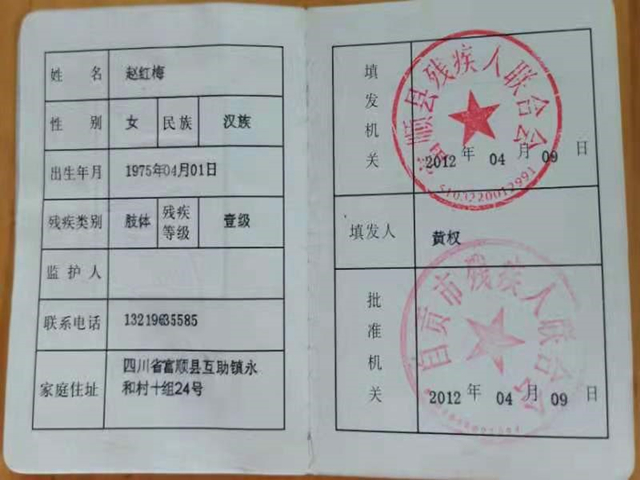 姓 名 赵红梅
性 别 女 民族 汉族
出生年月 1975年04月01日
残疾类别 肢体 残疾等级 壹级
监护人
联系电话 13219635585
家庭住址 四川省富顺县互助镇永
和村十组24号
填发机关
富顺县残疾人联合会
2012 年 04 月 09 日
5103220012991
填发人 黄权
批准机关
自贡市残疾人联合会
2012 年 04 月 09 日